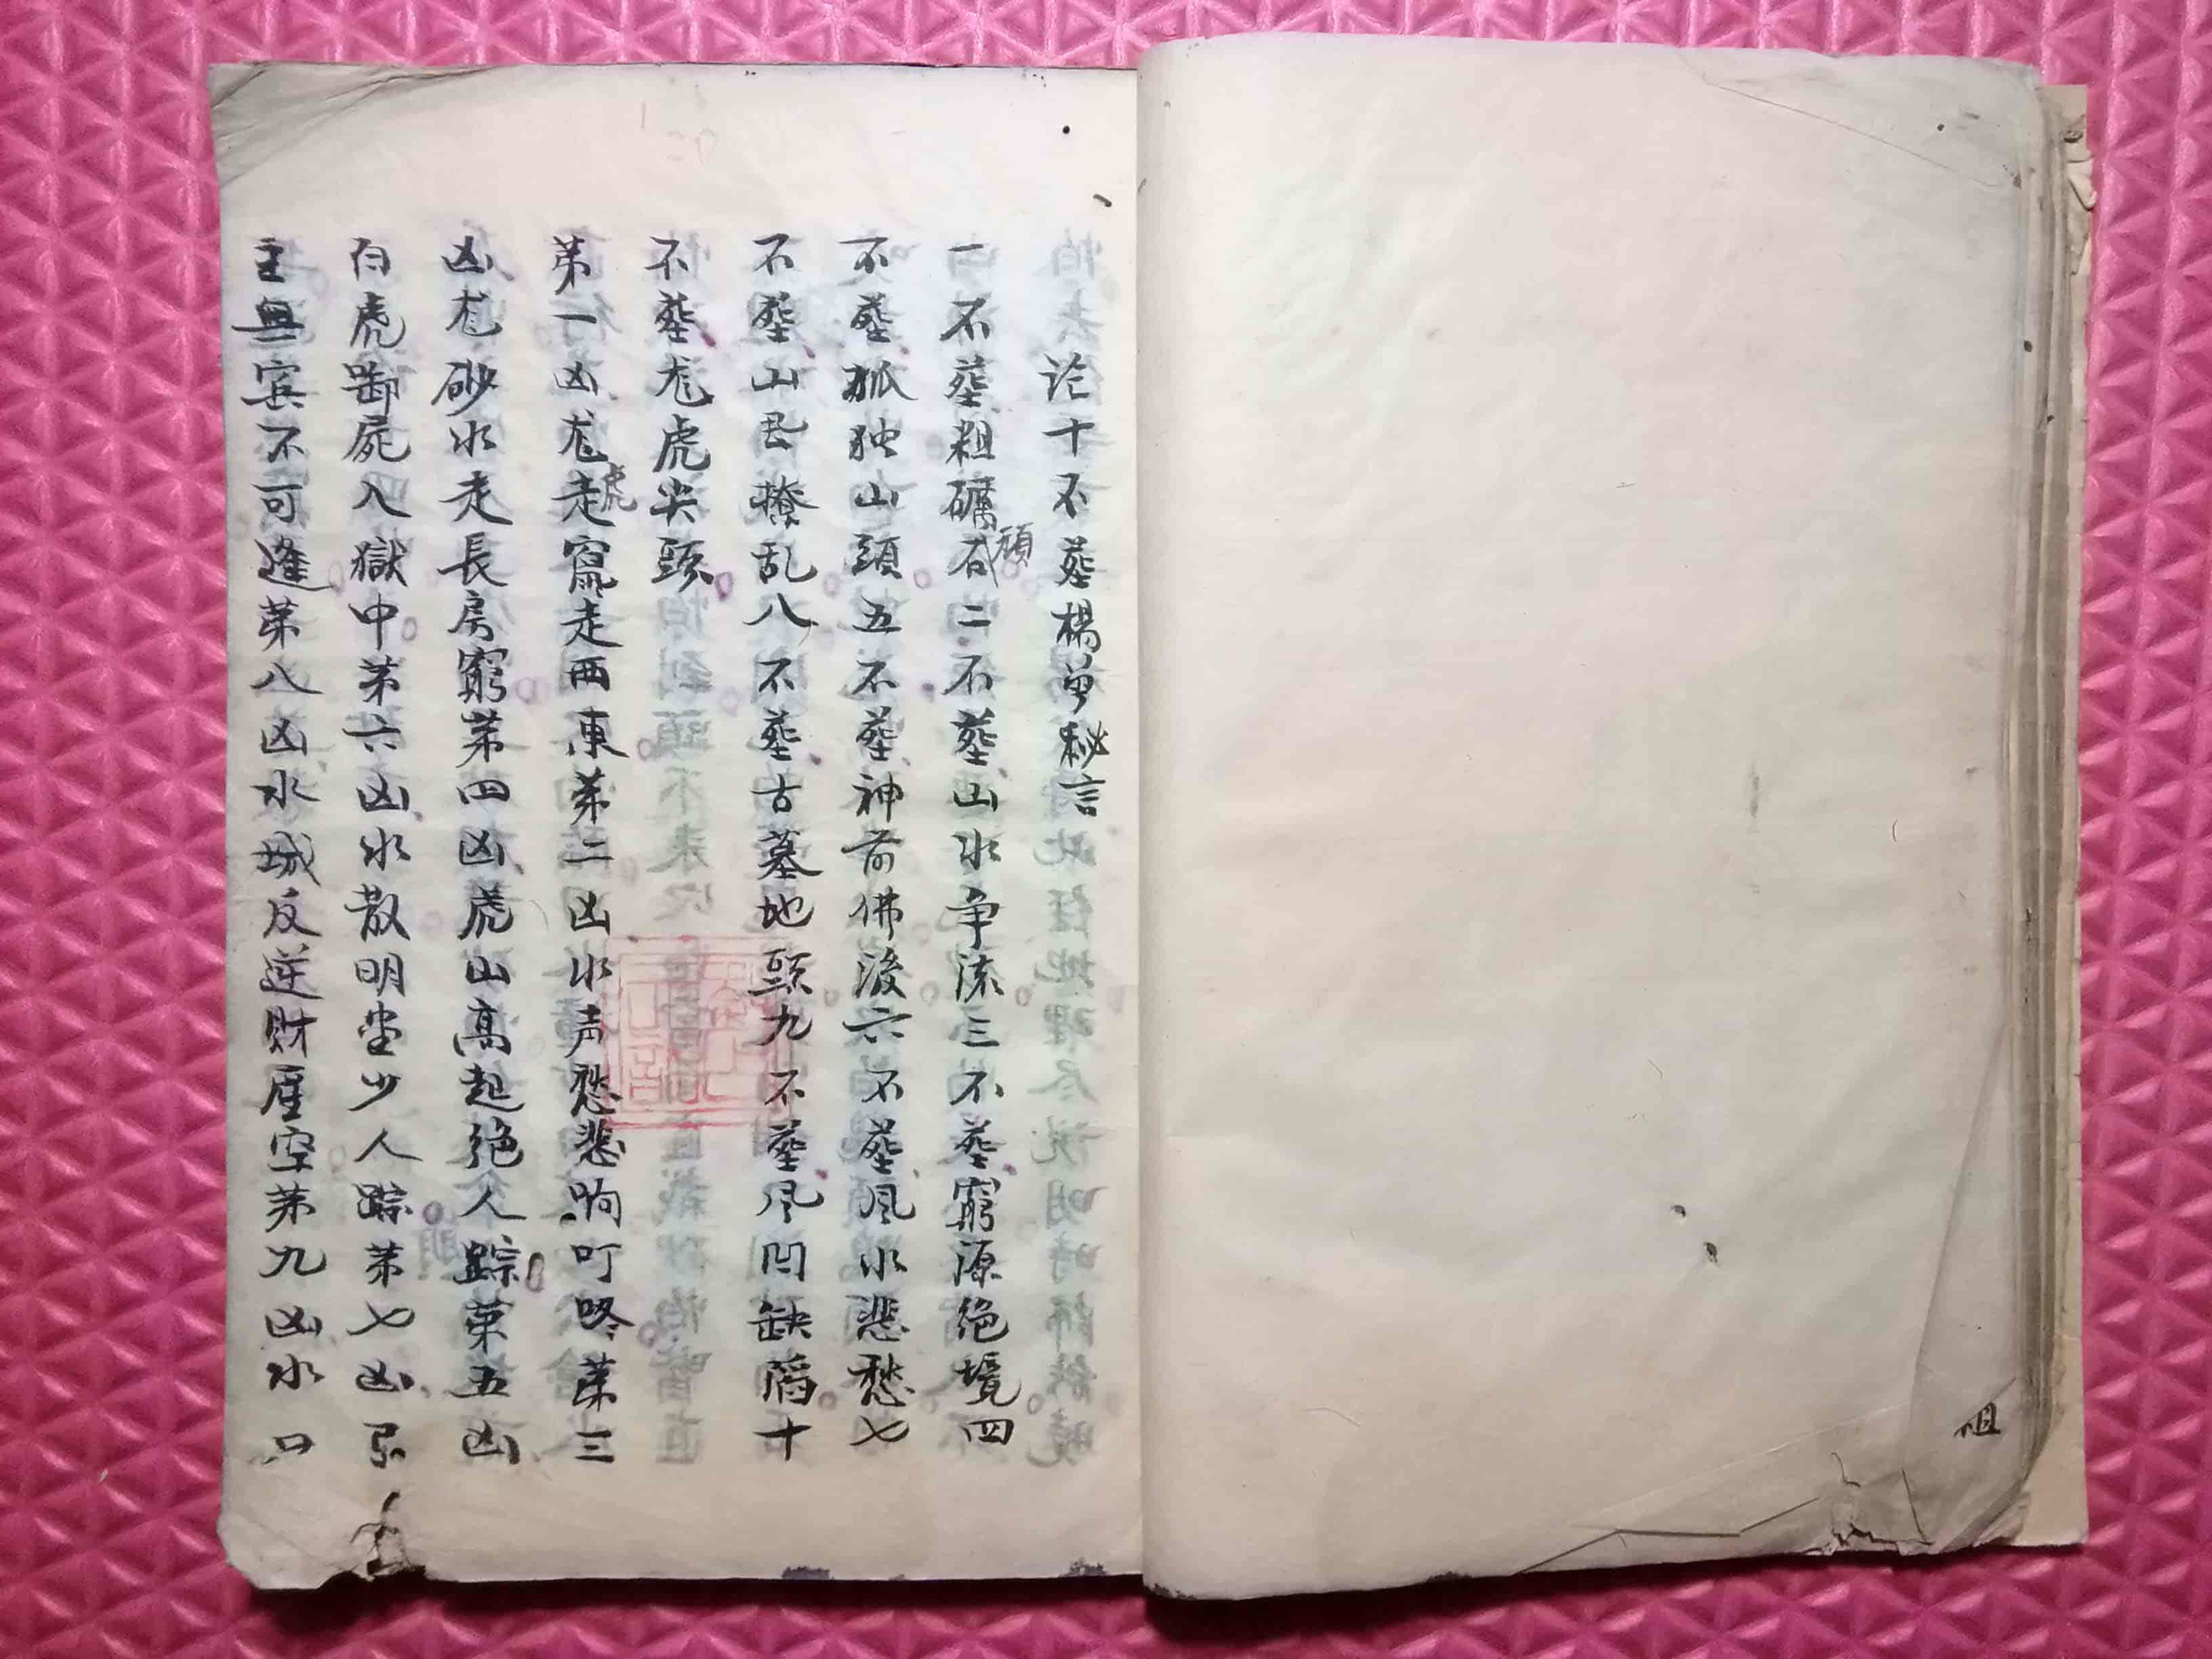 论十不葬楊曽秘言
一不葬粗礪頑石二不葬山水争流三不葬窮源绝境四
不葬孤独山頭五不葬神前佛後六不葬風水悲愁七
不葬山君撩乱八不葬古墓地頭九不葬风凹缺陷十
不葬龙虎尖頭
第一凶龙虎走竄走西東第二凶水声愁悲响叮咚第三
凶龙砂水走長房窮第四凶虎山高起绝人踪第五凶
白虎啣屍入獄中第六凶水散明堂少人踪第七凶有
主無宾不可逢第八凶水城反逆財産空第九凶水口
祖